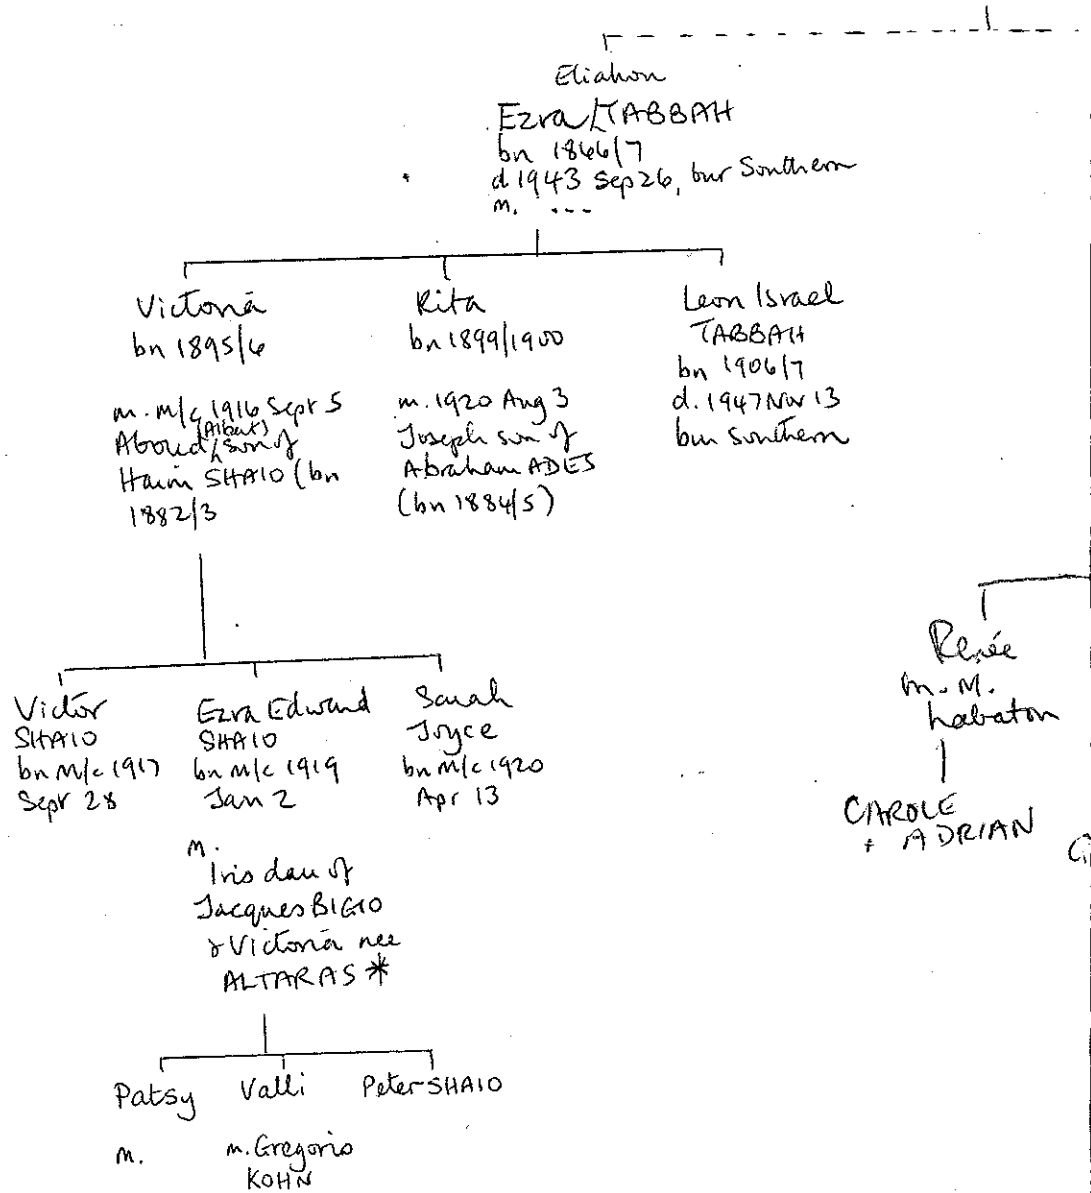 Eliahou
Ezra TABBAH
bn 1866/7
d 1943 Sep 26, bur Southern
m. ---
Victoria
bn 1895/6
m. M/c 1916 Sept 5
(Albert)
Aboud son of
Haim SHAIO (bn
1882/3
Rita
bn 1899/1900
m. 1920 Aug 3
Joseph son of
Abraham ADES
(bn 1884/5)
Leon Israel
TABBAH
bn 1906/7
d. 1947 Nov 13
bur Southern
Renée
m. M.
Labaton
CAROLE
+ ADRIAN
Victor
SHAIO
bn M/c 1917
Sept 28
Ezra Edward
SHAIO
bn M/c 1919
Jan 2
m.
Iris dau of
Jacques BIGIO
& Victoria nee
ALTARAS *
Sarah
Joyce
bn M/c 1920
Apr 13
Patsy
m.
Valli
m. Gregorio
KOHN
Peter SHAIO